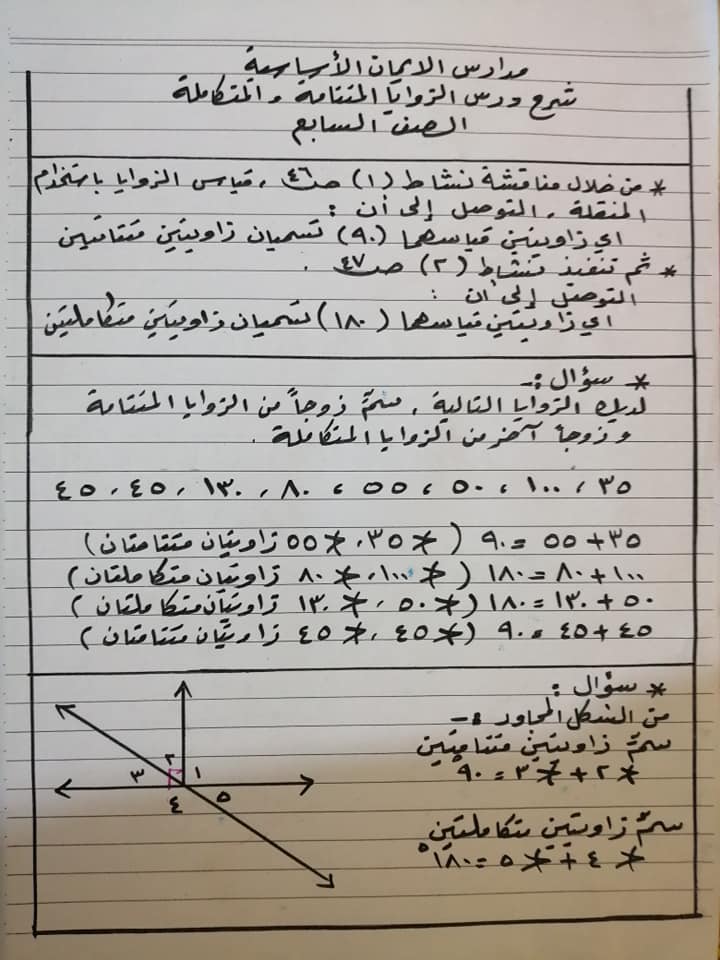 مدارس الايمان الأساسية
شرح درس الزوايا المتتامة والمتكاملة
الصف السابع
* من خلال مناقشة نشاط (١) ص٤٦ ، قياس الزوايا باستخدام
المنقلة ، التوصل إلى أن :
اي زاويتين قياسهما (٩٠) تسميان زاويتين متتامتين
* ثم تنفيذ نشاط (٢) ص٤٧ .
التوصل إلى أن :
اي زاويتين قياسهما (١٨٠) تسميان زاويتين متكاملتين
* سؤال :-
لديك الزوايا التالية ، سمّ زوجاً من الزوايا المتتامة
وزوجاً آخر من الزوايا المتكاملة .
٣٥ ، ١٠٠ ، ٥٠ ، ٥٥ ، ٨٠ ، ١٣٠ ، ٤٥ ، ٤٥
٣٥ + ٥٥ = ٩٠ (∢ ٣٥ ، ∢ ٥٥ زاويتان متتامتان)
١٠٠ + ٨٠ = ١٨٠ (∢ ١٠٠ ، ∢ ٨٠ زاويتان متكاملتان)
٥٠ + ١٣٠ = ١٨٠ (∢ ٥٠ ، ∢ ١٣٠ زاويتان متكاملتان)
٤٥ + ٤٥ = ٩٠ (∢ ٤٥ ، ∢ ٤٥ زاويتان متتامتان)
* سؤال :
من الشكل المجاور :-
سمّ زاويتين متتامتين
∢ ٢ + ∢ ٣ = ٩٠°
سمّ زاويتين متكاملتين
∢ ٤ + ∢ ٥ = ١٨٠°
١
٢
٣
٤
٥